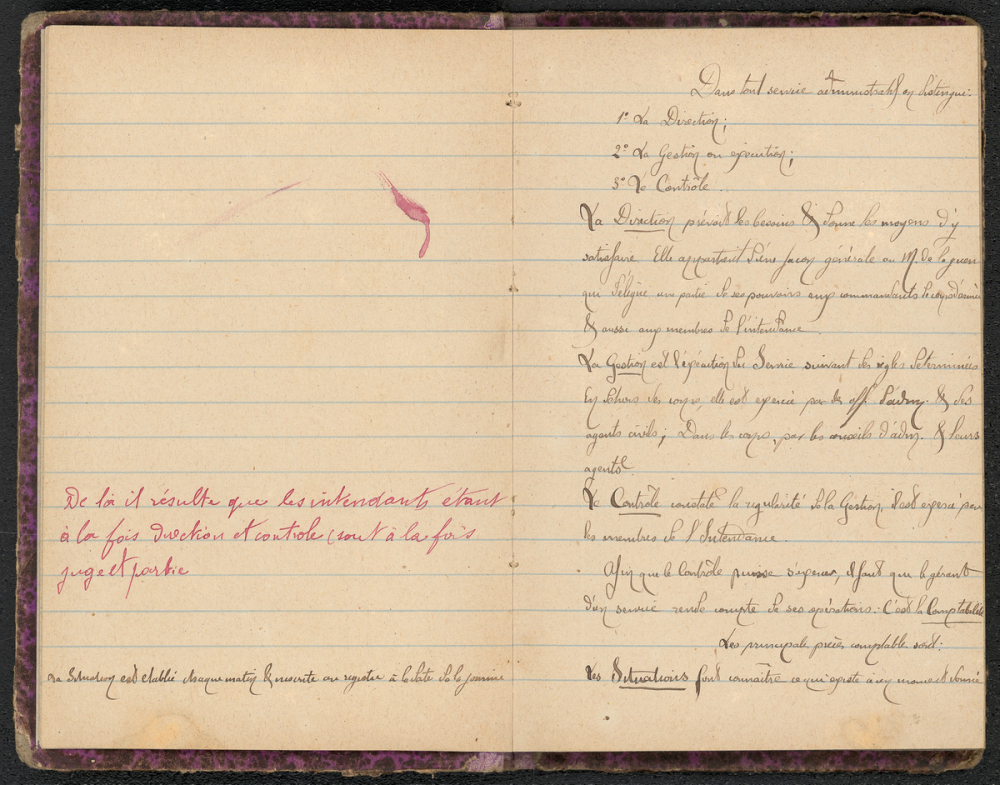 De là il résulte que les intendants étant
à la fois direction et controle (sont à la fois
juge et partie
La Situation est établie chaque matin & inscrite au registre à la date de la journée
Dans tout service administratif on distingue:
1º La Direction;
2º La Gestion ou exécution;
3º Le Contrôle.
La Direction prévoit les besoins & donne les moyens d'y
satisfaire Elle appartient d'une façon générale au M. de la guerre
qui délègue une partie de ses pouvoirs aux commandants de corps d'armée
& aussi aux membres de l'intendance.
La Gestion est l'éxécution du Service suivant des règles déterminées
En dehors des corps, elle est exercée par des off. d'adm. & des
agents civils; Dans les corps, par les conseils d'adm. & leurs
agents.
Le Contrôle constate la regularité de la Gestion, il est exercé par
les membres de l'Intendance.
Afin que le Contrôle puisse s'exercer, il faut que le gérant
d'un service rende compte de ses opérations: C'est la Comptabilité
Les principale pièces comptable sont:
Les Situations font connaître ce qui existe à un moment donné